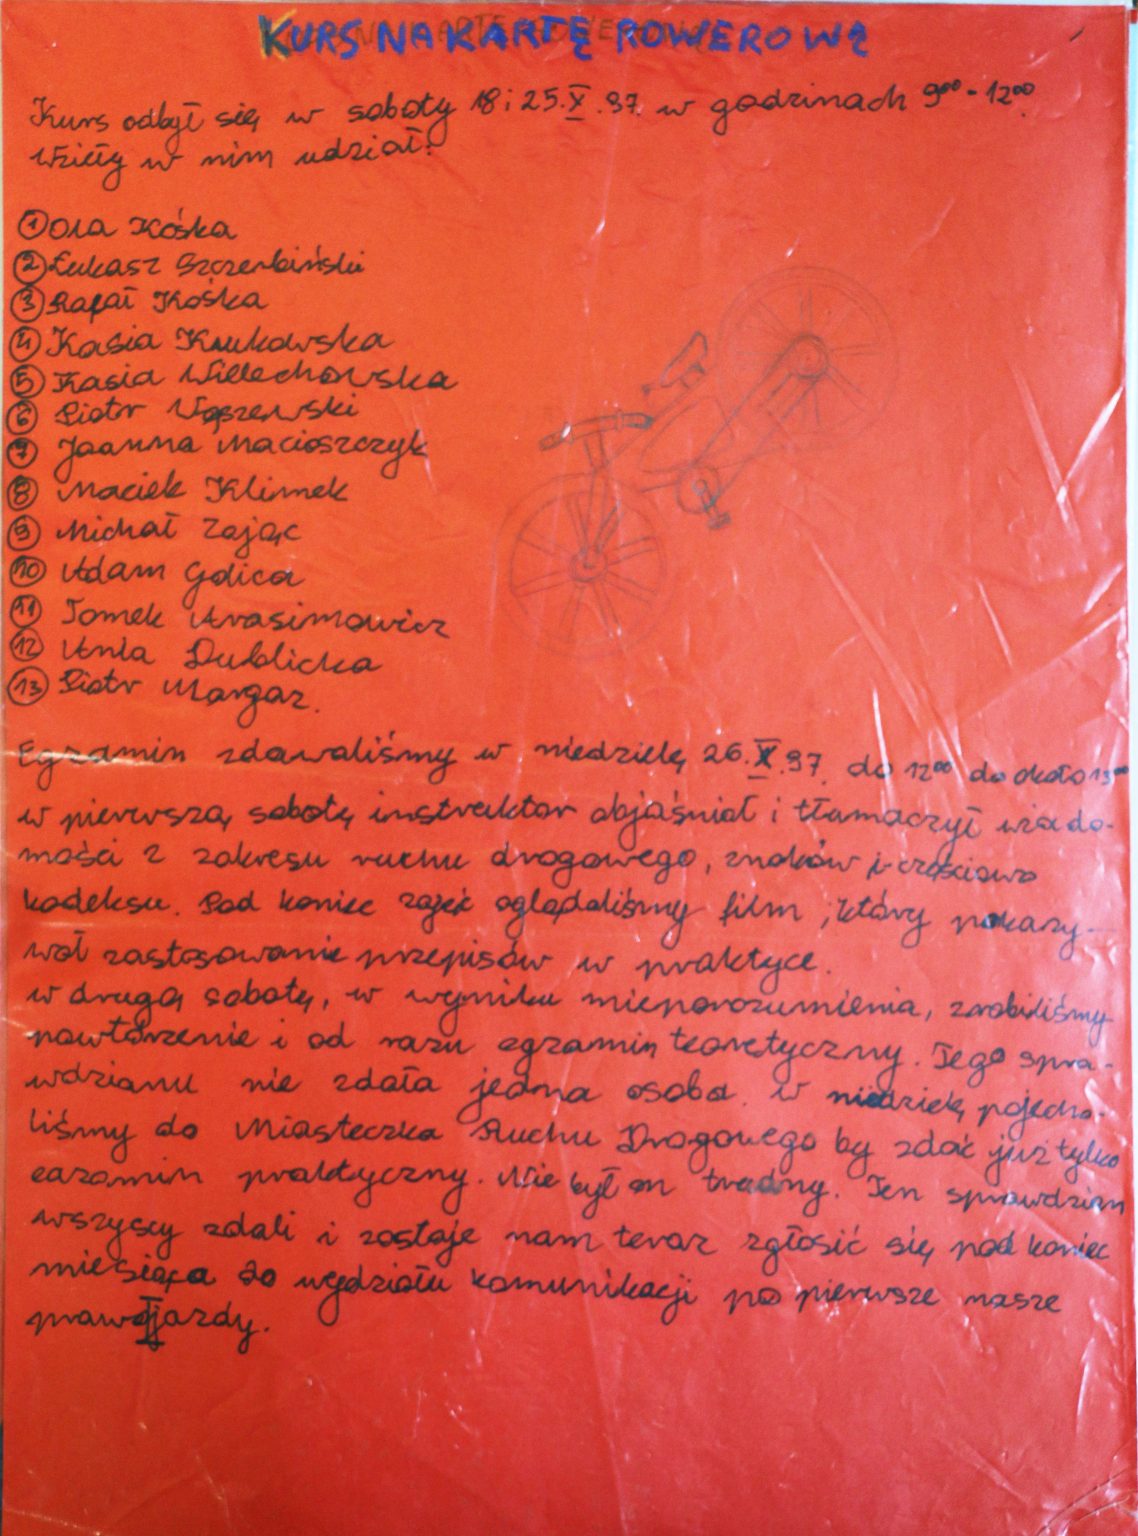 KURS NA KARTĘ ROWEROWĄ
Kurs odbył się w soboty 18 i 25.X.97. w godzinach 9⁰⁰ - 12⁰⁰.
Wzięły w nim udział:
1 Ola Kóśka
2 Łukasz Szczerbiński
3 Rafał Kośka
4 Kasia Krukowska
5 Kasia Willechowska
6 Piotr Wąszewski
7 Joanna Macioszczyk
8 Maciek Klimek
9 Michał Zając
10 Adam Golica
11 Tomek Arasimowicz
12 Ania Dublicka
13 Piotr Margaz.
Egzamin zdawaliśmy w niedzielę 26.X.97. do 12⁰⁰ do około 13⁰⁰
w pierwszą sobotę instruktor objaśniał i tłumaczył wiado-
mości z zakresu ruchu drogowego, znaków i częściowo
kodeksu. Pod koniec zajęć oglądaliśmy film, który pokazy-
wał zastosowanie przepisów w praktyce.
w drugą sobotę, w wyniku nieporozumienia, zrobiliśmy
powtórzenie i od razu egzamin teoretyczny. Tego spra-
wdzianu nie zdała jedna osoba. W niedzielę pojecha-
liśmy do Miasteczka Ruchu Drogowego by zdać już tylko
egzamin praktyczny. Nie był on trudny. Ten sprawdzian
wszyscy zdali i zostaje nam teraz zgłosić się pod koniec
miesiąca do wydziału komunikacji po pierwsze nasze
prawo jazdy.